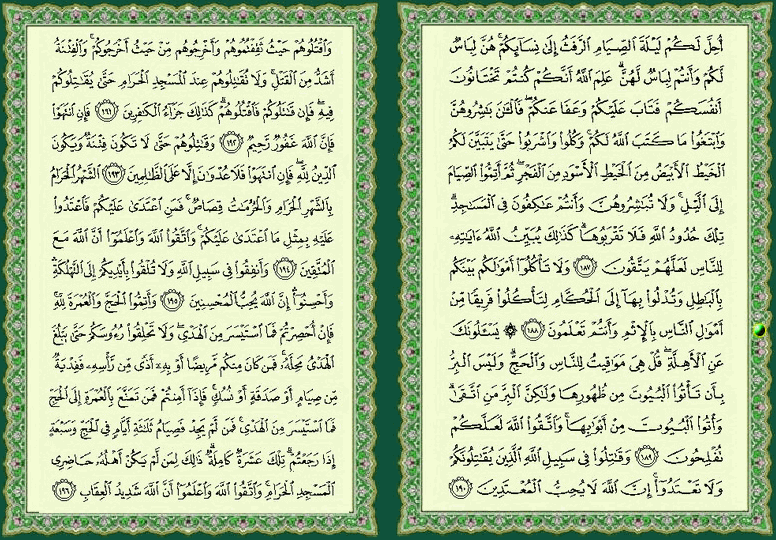 أُحِلَّ لَكُمْ لَيْلَةَ ٱلصِّيَامِ ٱلرَّفَثُ إِلَىٰ نِسَآئِكُمْ ۚ هُنَّ لِبَاسٌ
لَّكُمْ وَأَنتُمْ لِبَاسٌ لَّهُنَّ ۗ عَلِمَ ٱللَّهُ أَنَّكُمْ كُنتُمْ تَخْتَانُونَ
أَنفُسَكُمْ فَتَابَ عَلَيْكُمْ وَعَفَا عَنكُمْ ۖ فَٱلْـَٰٔنَ بَٰشِرُوهُنَّ
وَٱبْتَغُوا۟ مَا كَتَبَ ٱللَّهُ لَكُمْ ۚ وَكُلُوا۟ وَٱشْرَبُوا۟ حَتَّىٰ يَتَبَيَّنَ لَكُمُ
ٱلْخَيْطُ ٱلْأَبْيَضُ مِنَ ٱلْخَيْطِ ٱلْأَسْوَدِ مِنَ ٱلْفَجْرِ ۖ ثُمَّ أَتِمُّوا۟ ٱلصِّيَامَ
إِلَى ٱلَّيْلِ ۚ وَلَا تُبَٰشِرُوهُنَّ وَأَنتُمْ عَٰكِفُونَ فِى ٱلْمَسَٰجِدِ ۗ
تِلْكَ حُدُودُ ٱللَّهِ فَلَا تَقْرَبُوهَا ۗ كَذَٰلِكَ يُبَيِّنُ ٱللَّهُ ءَايَٰتِهِۦ
لِلنَّاسِ لَعَلَّهُمْ يَتَّقُونَ ١٨٧ وَلَا تَأْكُلُوٓا۟ أَمْوَٰلَكُم بَيْنَكُم
بِٱلْبَٰطِلِ وَتُدْلُوا۟ بِهَآ إِلَى ٱلْحُكَّامِ لِتَأْكُلُوا۟ فَرِيقًا مِّنْ
أَمْوَٰلِ ٱلنَّاسِ بِٱلْإِثْمِ وَأَنتُمْ تَعْلَمُونَ ١٨٨ ۞ يَسْـَٔلُونَكَ
عَنِ ٱلْأَهِلَّةِ ۖ قُلْ هِىَ مَوَٰقِيتُ لِلنَّاسِ وَٱلْحَجِّ ۗ وَلَيْسَ ٱلْبِرُّ
بِأَن تَأْتُوا۟ ٱلْبُيُوتَ مِن ظُهُورِهَا وَلَٰكِنَّ ٱلْبِرَّ مَنِ ٱتَّقَىٰ ۗ
وَأْتُوا۟ ٱلْبُيُوتَ مِنْ أَبْوَٰبِهَا ۚ وَٱتَّقُوا۟ ٱللَّهَ لَعَلَّكُمْ
تُفْلِحُونَ ١٨٩ وَقَٰتِلُوا۟ فِى سَبِيلِ ٱللَّهِ ٱلَّذِينَ يُقَٰتِلُونَكُمْ
وَلَا تَعْتَدُوٓا۟ ۚ إِنَّ ٱللَّهَ لَا يُحِبُّ ٱلْمُعْتَدِينَ ١٩٠
وَٱقْتُلُوهُمْ حَيْثُ ثَقِفْتُمُوهُمْ وَأَخْرِجُوهُم مِّنْ حَيْثُ أَخْرَجُوكُمْ ۚ وَٱلْفِتْنَةُ
أَشَدُّ مِنَ ٱلْقَتْلِ ۚ وَلَا تُقَٰتِلُوهُمْ عِندَ ٱلْمَسْجِدِ ٱلْحَرَامِ حَتَّىٰ يُقَٰتِلُوكُمْ
فِيهِ ۖ فَإِن قَٰتَلُوكُمْ فَٱقْتُلُوهُمْ ۗ كَذَٰلِكَ جَزَآءُ ٱلْكَٰفِرِينَ ١٩١ فَإِنِ ٱنتَهَوْا۟
فَإِنَّ ٱللَّهَ غَفُورٌ رَّحِيمٌ ١٩٢ وَقَٰتِلُوهُمْ حَتَّىٰ لَا تَكُونَ فِتْنَةٌ وَيَكُونَ
ٱلدِّينُ لِلَّهِ ۖ فَإِنِ ٱنتَهَوْا۟ فَلَا عُدْوَٰنَ إِلَّا عَلَى ٱلظَّٰلِمِينَ ١٩٣ ٱلشَّهْرُ ٱلْحَرَامُ
بِٱلشَّهْرِ ٱلْحَرَامِ وَٱلْحُرُمَٰتُ قِصَاصٌ ۚ فَمَنِ ٱعْتَدَىٰ عَلَيْكُمْ فَٱعْتَدُوا۟
عَلَيْهِ بِمِثْلِ مَا ٱعْتَدَىٰ عَلَيْكُمْ ۚ وَٱتَّقُوا۟ ٱللَّهَ وَٱعْلَمُوٓا۟ أَنَّ ٱللَّهَ مَعَ
ٱلْمُتَّقِينَ ١٩٤ وَأَنفِقُوا۟ فِى سَبِيلِ ٱللَّهِ وَلَا تُلْقُوا۟ بِأَيْدِيكُمْ إِلَى ٱلتَّهْلُكَةِ ۛ
وَأَحْسِنُوٓا۟ ۛ إِنَّ ٱللَّهَ يُحِبُّ ٱلْمُحْسِنِينَ ١٩٥ وَأَتِمُّوا۟ ٱلْحَجَّ وَٱلْعُمْرَةَ لِلَّهِ ۚ
فَإِنْ أُحْصِرْتُمْ فَمَا ٱسْتَيْسَرَ مِنَ ٱلْهَدْىِ ۖ وَلَا تَحْلِقُوا۟ رُءُوسَكُمْ حَتَّىٰ يَبْلُغَ
ٱلْهَدْىُ مَحِلَّهُۥ ۚ فَمَن كَانَ مِنكُم مَّرِيضًا أَوْ بِهِۦٓ أَذًى مِّن رَّأْسِهِۦ فَفِدْيَةٌ
مِّن صِيَامٍ أَوْ صَدَقَةٍ أَوْ نُسُكٍ ۚ فَإِذَآ أَمِنتُمْ فَمَن تَمَتَّعَ بِٱلْعُمْرَةِ إِلَى ٱلْحَجِّ
فَمَا ٱسْتَيْسَرَ مِنَ ٱلْهَدْىِ ۚ فَمَن لَّمْ يَجِدْ فَصِيَامُ ثَلَٰثَةِ أَيَّامٍ فِى ٱلْحَجِّ وَسَبْعَةٍ
إِذَا رَجَعْتُمْ ۗ تِلْكَ عَشَرَةٌ كَامِلَةٌ ۗ ذَٰلِكَ لِمَن لَّمْ يَكُنْ أَهْلُهُۥ حَاضِرِى
ٱلْمَسْجِدِ ٱلْحَرَامِ ۚ وَٱتَّقُوا۟ ٱللَّهَ وَٱعْلَمُوٓا۟ أَنَّ ٱللَّهَ شَدِيدُ ٱلْعِقَابِ ١٩٦